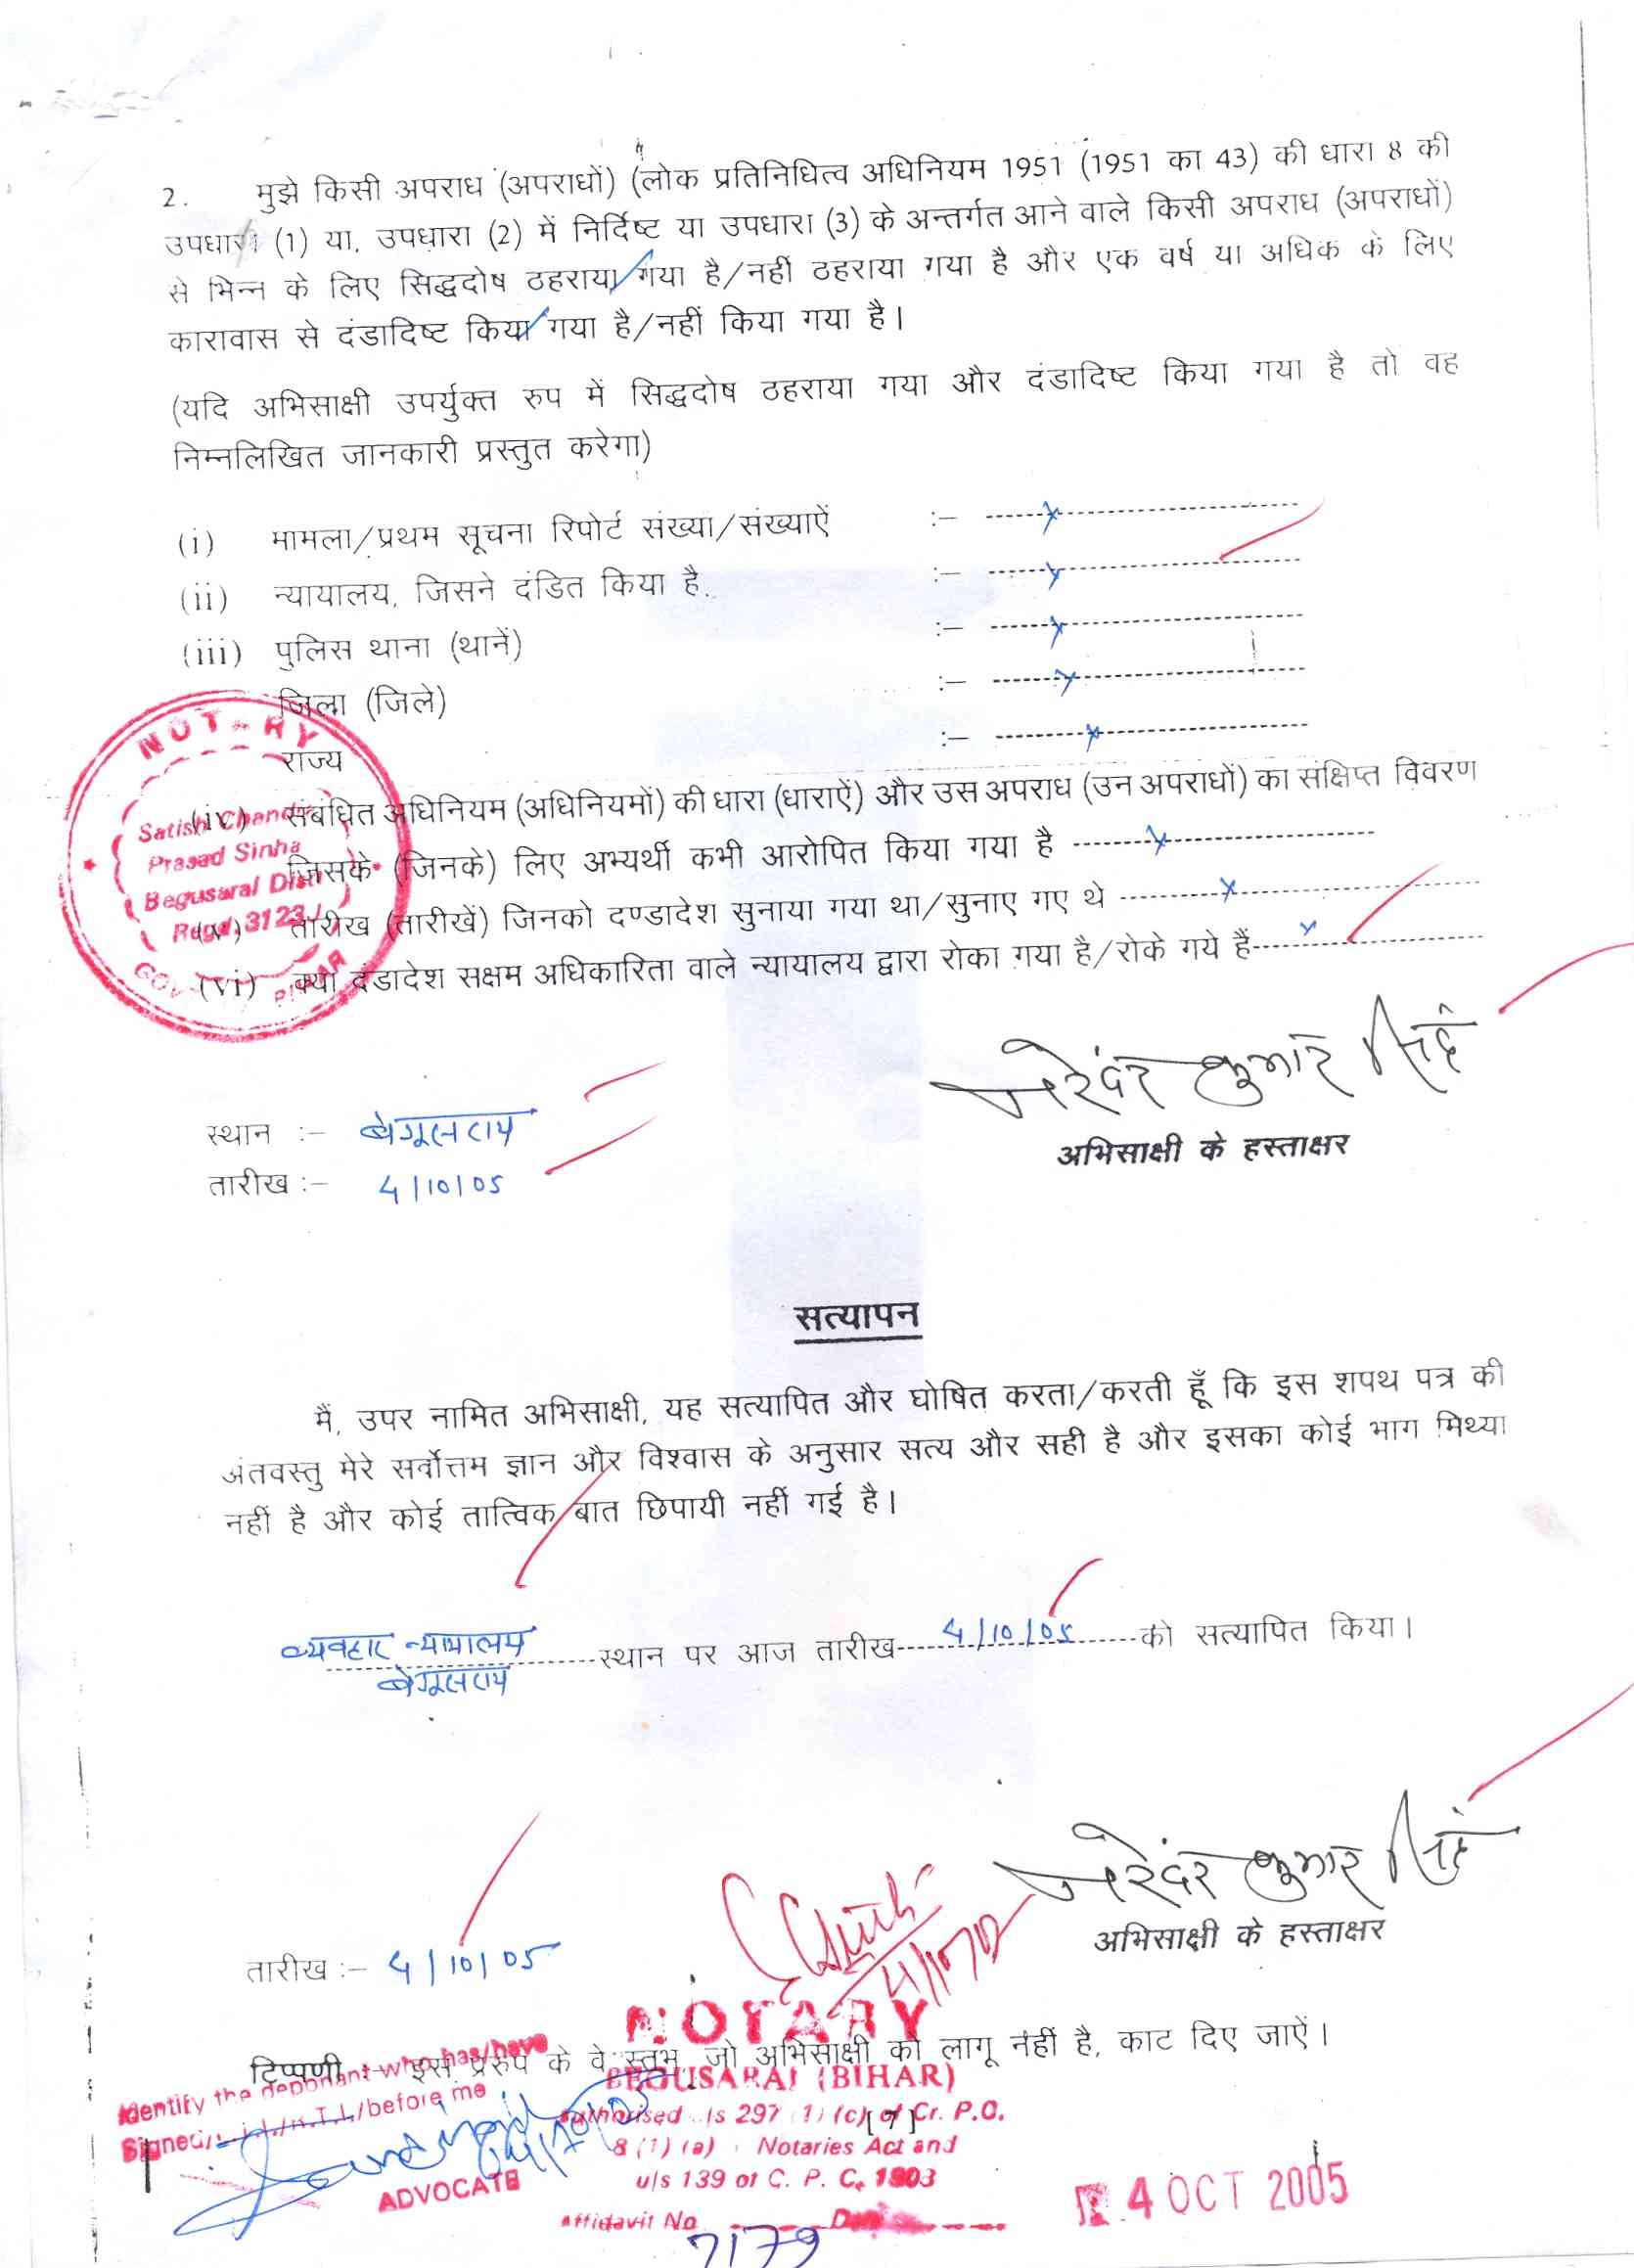 2. मुझे किसी अपराध (अपराधों) (लोक प्रतिनिधित्व अधिनियम 1951 (1951 का 43) की धारा 8 की
उपधारा (1) या, उपधारा (2) में निर्दिष्ट या उपधारा (3) के अन्तर्गत आने वाले किसी अपराध (अपराधों)
से भिन्न के लिए सिद्धदोष ठहराया गया है/नहीं ठहराया गया है और एक वर्ष या अधिक के लिए
कारावास से दंडादिष्ट किया गया है/नहीं किया गया है।
(यदि अभिसाक्षी उपर्युक्त रुप में सिद्धदोष ठहराया गया और दंडादिष्ट किया गया है तो वह
निम्नलिखित जानकारी प्रस्तुत करेगा)
(i) मामला/प्रथम सूचना रिपोर्ट संख्या/संख्याऐं :– x
(ii) न्यायालय, जिसने दंडित किया है. :– x
(iii) पुलिस थाना (थानें) :– x
जिला (जिले) :– x
राज्य :– x
(iv) संबंधित अधिनियम (अधिनियमों) की धारा (धाराऐं) और उस अपराध (उन अपराधों) का संक्षिप्त विवरण
जिसके (जिनके) लिए अभ्यर्थी कभी आरोपित किया गया है x
(v) तारीख (तारीखें) जिनको दण्डादेश सुनाया गया था/सुनाए गए थे x
(vi) क्या दंडादेश सक्षम अधिकारिता वाले न्यायालय द्वारा रोका गया है/रोके गये हैं x
NOTARY
Satish Chandra
Prasad Sinha
Begusarai Distt
Regd. 3123
GOVT. BIHAR
नरेंदर कुमार सिंह
अभिसाक्षी के हस्ताक्षर
स्थान :– बेगूसराय
तारीख :– 4/10/05
सत्यापन
मैं, उपर नामित अभिसाक्षी, यह सत्यापित और घोषित करता/करती हूँ कि इस शपथ पत्र की
अंतवस्तु मेरे सर्वोत्तम ज्ञान और विश्वास के अनुसार सत्य और सही है और इसका कोई भाग मिथ्या
नहीं है और कोई तात्विक बात छिपायी नहीं गई है।
व्यवहार न्यायालय स्थान पर आज तारीख 4/10/05 को सत्यापित किया।
बेगूसराय
नरेंदर कुमार सिंह
अभिसाक्षी के हस्ताक्षर
तारीख :– 4/10/05
NOTARY
टिप्पणी :– इस प्ररुप के वे स्तंभ, जो अभिसाक्षी को लागू नहीं है, काट दिए जाऐं।
BEGUSARAI (BIHAR)
Identify the deponant who has/have
Signed/L.T.I./before me
ADVOCATE
Authorised u/s 297 (1) (c) of Cr. P.C.
[7]
8 (1) (a) Notaries Act and
u/s 139 of C. P. C. 1908
Affidavit No 7179
4 OCT 2005